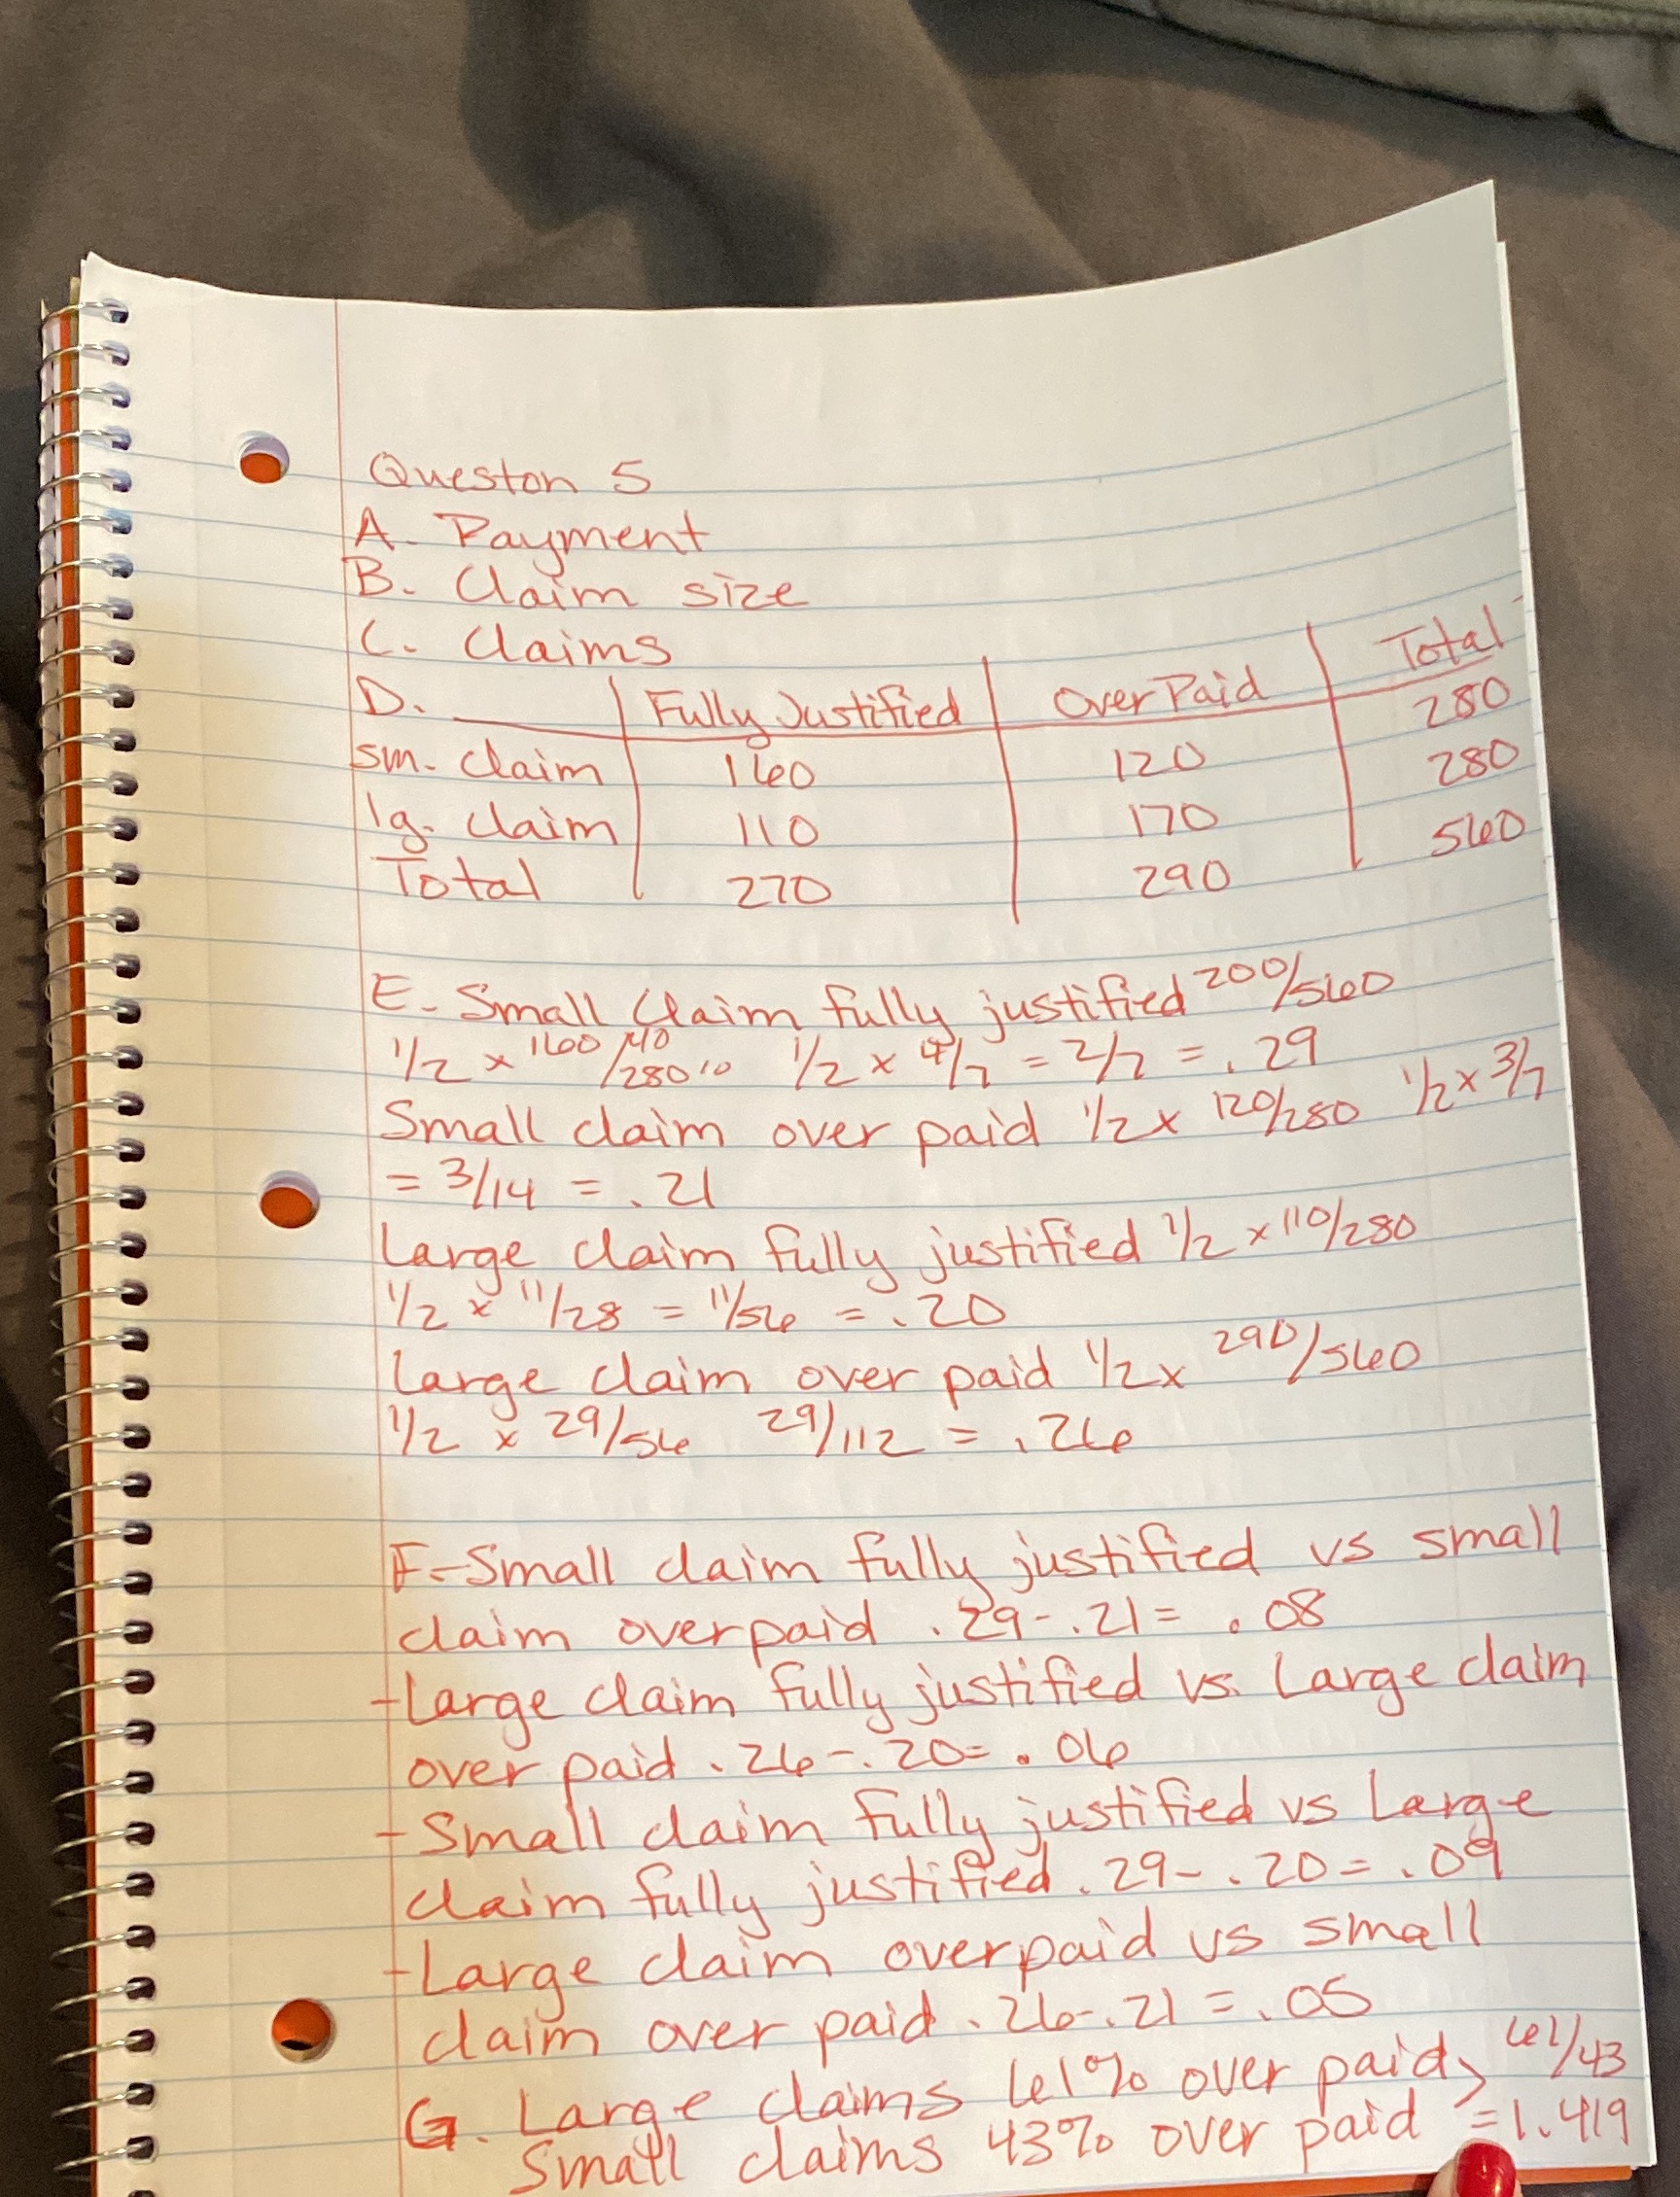 Queston 5
A. Payment
B. Claim size
C. Claims
D. Fully Justified Over Paid Total
280
sm. claim 160 120 280
lg. claim 110 170 560
Total 270 290
E. Small Claim fully justified 200/560
1/2 x 160/280 40/10 1/2 x 4/7 = 2/7 = .29
Small claim over paid 1/2 x 120/280 1/2 x 3/7
= 3/14 = .21
Large claim fully justified 1/2 x 110/280
1/2 x 11/28 = 11/56 = .20
Large claim over paid 1/2 x 290/560
1/2 x 29/56 29/112 = .26
F-Small claim fully justified vs small
claim overpaid .29-.21= .08
-Large claim fully justified vs. Large claim
over paid .26-.20= .06
-Small claim fully justified vs Large
claim fully justified .29-.20=.09
-Large claim overpaid vs small
claim over paid .26-.21=.05
G. Large claims 61% over paid > 61/43
Small claims 43% over paid =1.419